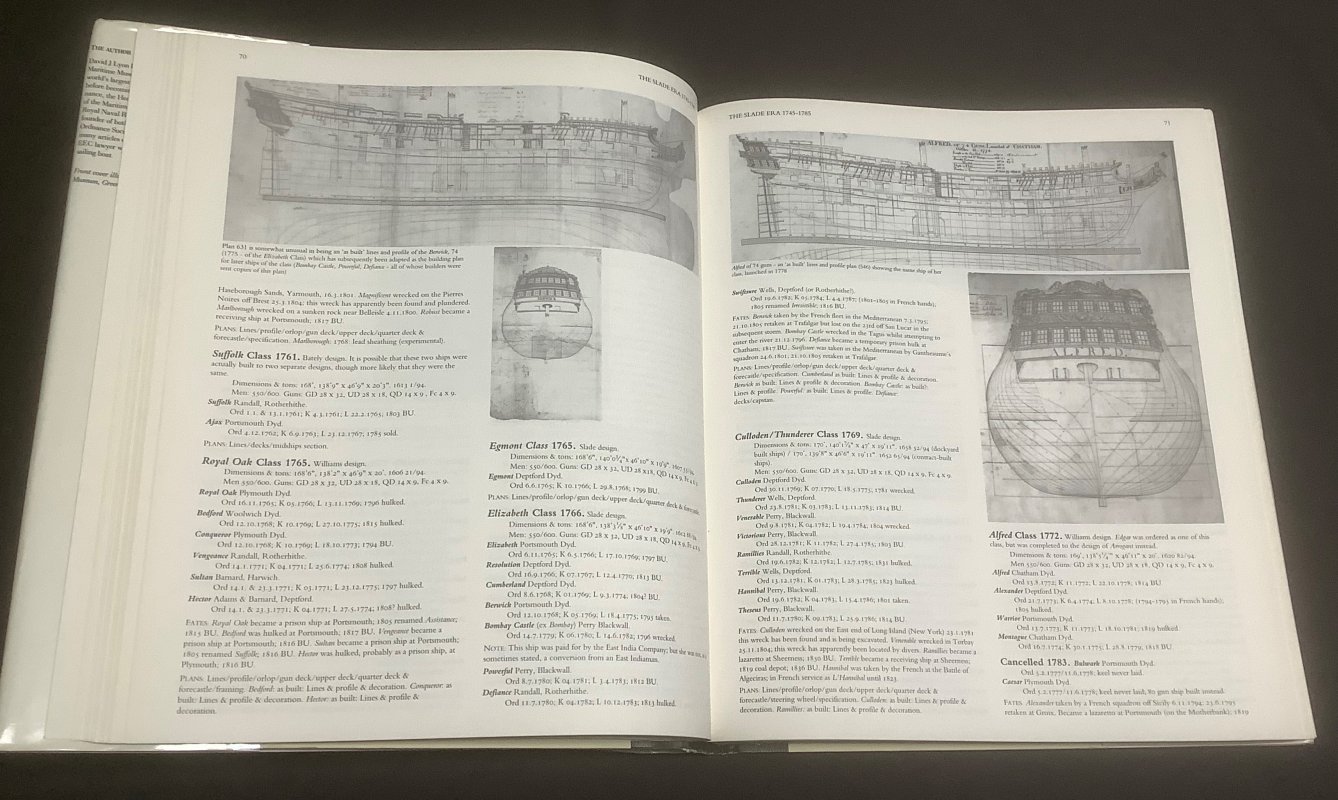 THE AUTHOR
David J Lyon
Maritime
world's largest
before
of the
Royal Naval
founder of
Ordnance
many articles
EEC lawyer
sailing boat
Front cover
Museum,
70
THE SLADE ERA
Plan 631 is somewhat unusual in being an 'as built' lines and profile of the Berwick, 74
(1775 - of the Elizabeth Class) which has subsequently been adapted as the building plan
for later ships of the class (Bombay Castle, Powerful, Defiance - all of whose builders were
sent copies of this plan)
Haseborough Sands, Yarmouth, 16.3.1801. Magnificent wrecked on the Pierres
Noires off Brest 25.3.1804; this wreck has apparently been found and plundered.
Marlborough wrecked on a sunken rock near Belleisle 4.11.1800. Robust became a
receiving ship at Portsmouth, 1817 BU.
PLANS: Lines/profile/orlop/gun deck/upper deck/quarter deck &
forecastle/specification. Marlborough: 1768: lead sheathing (experimental).
Suffolk Class 1761. Bately design. It is possible that these two ships were
actually built to two separate designs, though more likely that they were the
same.
Dimensions & tons: 168', 138'2" x 46'9" x 20'3". 1613 1/94.
Men: 550/600. Guns: GD 28 x 32, UD 28 x 18, QD 14 x 9, Fc 4 x 9.
Suffolk Randall, Rotherhithe.
Ord 1.1. & 13.1.1761; K 4.3.1761; L 22.2.1765; 1803 BU.
Ajax Portsmouth Dyd.
Ord 4.12.1762; K 6.9.1763; L 23.12.1767; 1785 sold.
PLANS: Lines/decks/midships section.
Royal Oak Class 1765. Williams design.
Dimensions & tons: 168'6", 138'2" x 46'9" x 20'. 1606 21/94.
Men 550/600. Guns: GD 28 x 32, UD 28 x 18, QD 14 x 9, Fc 4 x 9.
Royal Oak Plymouth Dyd.
Ord 16.11.1765; K 05.1766; L 13.11.1769; 1796 hulked.
Bedford Woolwich Dyd.
Ord 12.10.1768; K 10.1769; L 27.10.1775; 1815 hulked.
Conqueror Plymouth Dyd.
Ord 12.10.1768; K 10.1769; L 18.10.1773; 1794 BU.
Vengeance Randall, Rotherhithe.
Ord 14.1.1771; K 04.1771; L 25.6.1774; 1808 hulked.
Sultan Barnard, Harwich.
Ord 14.1. & 23.1.1771; K 03.1771; L 23.12.1775; 1797 hulked.
Hector Adams & Barnard, Deptford.
Ord 14.1. & 23.3.1771; K 04.1771; L 27.5.1774; 1808? hulked.
FATES: Royal Oak became a prison ship at Portsmouth; 1805 renamed Assistance;
1815 BU. Bedford was hulked at Portsmouth; 1817 BU. Vengeance became a
prison ship at Portsmouth; 1816 BU. Sultan became a prison ship at Portsmouth;
1805 renamed Suffolk; 1816 BU. Hector was hulked, probably as a prison ship, at
Plymouth, 1816 BU.
PLANS: Lines/profile/orlop/gun deck/upper deck/quarter deck &
forecastle/framing. Bedford: as built: Lines & profile & decoration. Conqueror: as
built: Lines & profile & decoration. Hector: as built: Lines & profile &
decoration.
Egmont Class 1765. Slade design.
Dimensions & tons: 168'6", 140'0¾" x 46'10" x 19'9".
Men: 550/600. Guns: GD 28 x 32, UD 28 x18, QD 14 x 9, Fc 4 x 9
Egmont Deptford Dyd.
Ord 6.6.1765; K 10.1766; L 29.8.1768; 1799 BU.
PLANS: Lines/profile/orlop/gun deck/upper deck/quarter deck &
Elizabeth Class 1766. Slade design.
Dimensions & tons: 168'6", 138'3⅛" x 46'10" x 19'9".
Men: 550/600. Guns: GD 28 x 32, UD 28 x 18, QD 14 x 9, Fc
Elizabeth Portsmouth Dyd.
Ord 6.11.1765; K 6.5.1766; L 17.10.1769; 1797 BU.
Resolution Deptford Dyd.
Ord 16.9.1766; K 07.1767; L 12.4.1770; 1813 BU.
Cumberland Deptford Dyd.
Ord 8.6.1768; K 01.1769; L 9.3.1774; 1804? BU.
Berwick Portsmouth Dyd.
Ord 12.10.1768; K 05.1769; L 18.4.1775; 1795 taken.
Bombay Castle (ex Bombay) Perry Blackwall.
Ord 14.7.1779; K 06.1780; L 14.6.1782; 1796 wrecked.
NOTE: This ship was paid for by the East India Company; but she was not, as
sometimes stated, a conversion from an East Indiaman.
Powerful Perry, Blackwall.
Ord 8.7.1780; K 04.1781; L 3.4.1783; 1812 BU.
Defiance Randall, Rotherhithe.
Ord 11.7.1780; K 04.1782; L 10.12.1783; 1813 hulked.
THE SLADE ERA 1745-1785
71
ALFRED, of 74 Guns, Launched at CHATHAM
Alfred of 74 guns - an 'as built' lines and profile plan (546) showing the name ship of her
class, launched in 1778
Swiftsure Wells, Deptford (or Rotherhithe?).
Ord 19.6.1782; K 05.1784; L 4.4.1787; (1801-1805 in French hands);
1805 renamed Irresistible; 1816 BU.
FATES: Berwick taken by the French fleet in the Mediterranean 7.3.1795;
21.10.1805 retaken at Trafalgar but lost on the 23rd off San Lucar in the
subsequent storm. Bombay Castle wrecked in the Tagus whilst attempting to
enter the river 21.12.1796. Defiance became a temporary prison hulk at
Chatham; 1817 BU. Swiftsure was taken in the Mediterranean by Gantheaume's
squadron 24.6.1801, 21.10.1805 retaken at Trafalgar.
PLANS: Lines/profile/orlop/gun deck/upper deck/quarter deck &
forecastle/specification. Cumberland as built: Lines & profile & decoration.
Berwick as built: Lines & profile & decoration. Bombay Castle: as built:
Lines & profile. Powerful: as built: Lines & profile. Defiance:
decks/capstan.
ALFRED.
Culloden/Thunderer Class 1769. Slade design.
Dimensions & tons: 170', 140'1⅞" x 47' x 19'11". 1658 52/94 (dockyard
built ships) / 170', 139'8" x 46'6" x 19'11". 1652 65/94 (contract-built
ships).
Men: 550/600. Guns: GD 28 x 32, UD 28 x18, QD 14 x 9, Fc 4 x 9.
Culloden Deptford Dyd.
Ord 30.11.1769; K 07.1770; L 18.5.1775; 1781 wrecked.
Thunderer Wells, Deptford.
Ord 23.8.1781; K 03.1783; L 13.11.1783; 1814 BU.
Venerable Perry, Blackwall.
Ord 9.8.1781; K 04.1782; L 19.4.1784; 1804 wrecked.
Victorious Perry, Blackwall.
Ord 28.12.1781; K 11.1782; L 27.4.1785; 1803 BU.
Ramillies Randall, Rotherhithe.
Ord 19.6.1782; K 12.1782; L 12.7.1785; 1831 hulked.
Terrible Wells, Deptford.
Ord 13.12.1781; K 01.1783; L 28.3.1785; 1823 hulked.
Hannibal Perry, Blackwall.
Ord 19.6.1782; K 04.1783; L 15.4.1786; 1801 taken.
Theseus Perry, Blackwall.
Ord 11.7.1780; K 09.1783; L 25.9.1786; 1814 BU.
FATES: Culloden wrecked on the East end of Long Island (New York) 23.1.1781
this wreck has been found and is being excavated. Venerable wrecked in Torbay
25.11.1804; this wreck has apparently been located by divers. Ramillies became a
lazaretto at Sheerness; 1850 BU. Terrible became a receiving ship at Sheerness;
1829 coal depot; 1836 BU. Hannibal was taken by the French at the Battle of
Algeciras; in French service as L'Hannibal until 1823.
PLANS: Lines/profile/orlop/gun deck/upper deck/quarter deck &
forecastle/steering wheel/specification. Culloden: as built: Lines & profile &
decoration. Ramillies: as built: Lines & profile & decoration.
Alfred Class 1772. Williams design. Edgar was ordered as one of this
class, but was completed to the design of Arrogant instead.
Dimensions & tons: 169', 138'5¼" x 46'11" x 20'. 1620 82/94.
Men 550/600. Guns: GD 28 x 32, UD 28 x 18, QD 14 x 9, Fc 4 x 9.
Alfred Chatham Dyd.
Ord 13.8.1772; K 11.1772; L 22.10.1778; 1814 BU
Alexander Deptford Dyd.
Ord 21.7.1773; K 6.4.1774; L 8.10.1778; (1794-1795 in French hands);
1805 hulked.
Warrior Portsmouth Dyd.
Ord 13.7.1773; K 11.1773; L 18.10.1781; 1819 hulked.
Montague Chatham Dyd.
Ord 16.7.1774; K 30.1.1775; L 28.8.1779; 1818 BU.
Cancelled 1783. Bulwark Portsmouth Dyd.
Ord 5.2.1777/11.6.1778; keel never laid.
Caesar Plymouth Dyd.
Ord 5.2.1777/11.6.1778; keel never laid, 80 gun ship built instead.
FATES Alexander taken by a French squadron off Sicily 6.11.1794; 23.6.1795
retaken at Groix. Became a lazaretto at Portsmouth (on the Motherbank); 1819